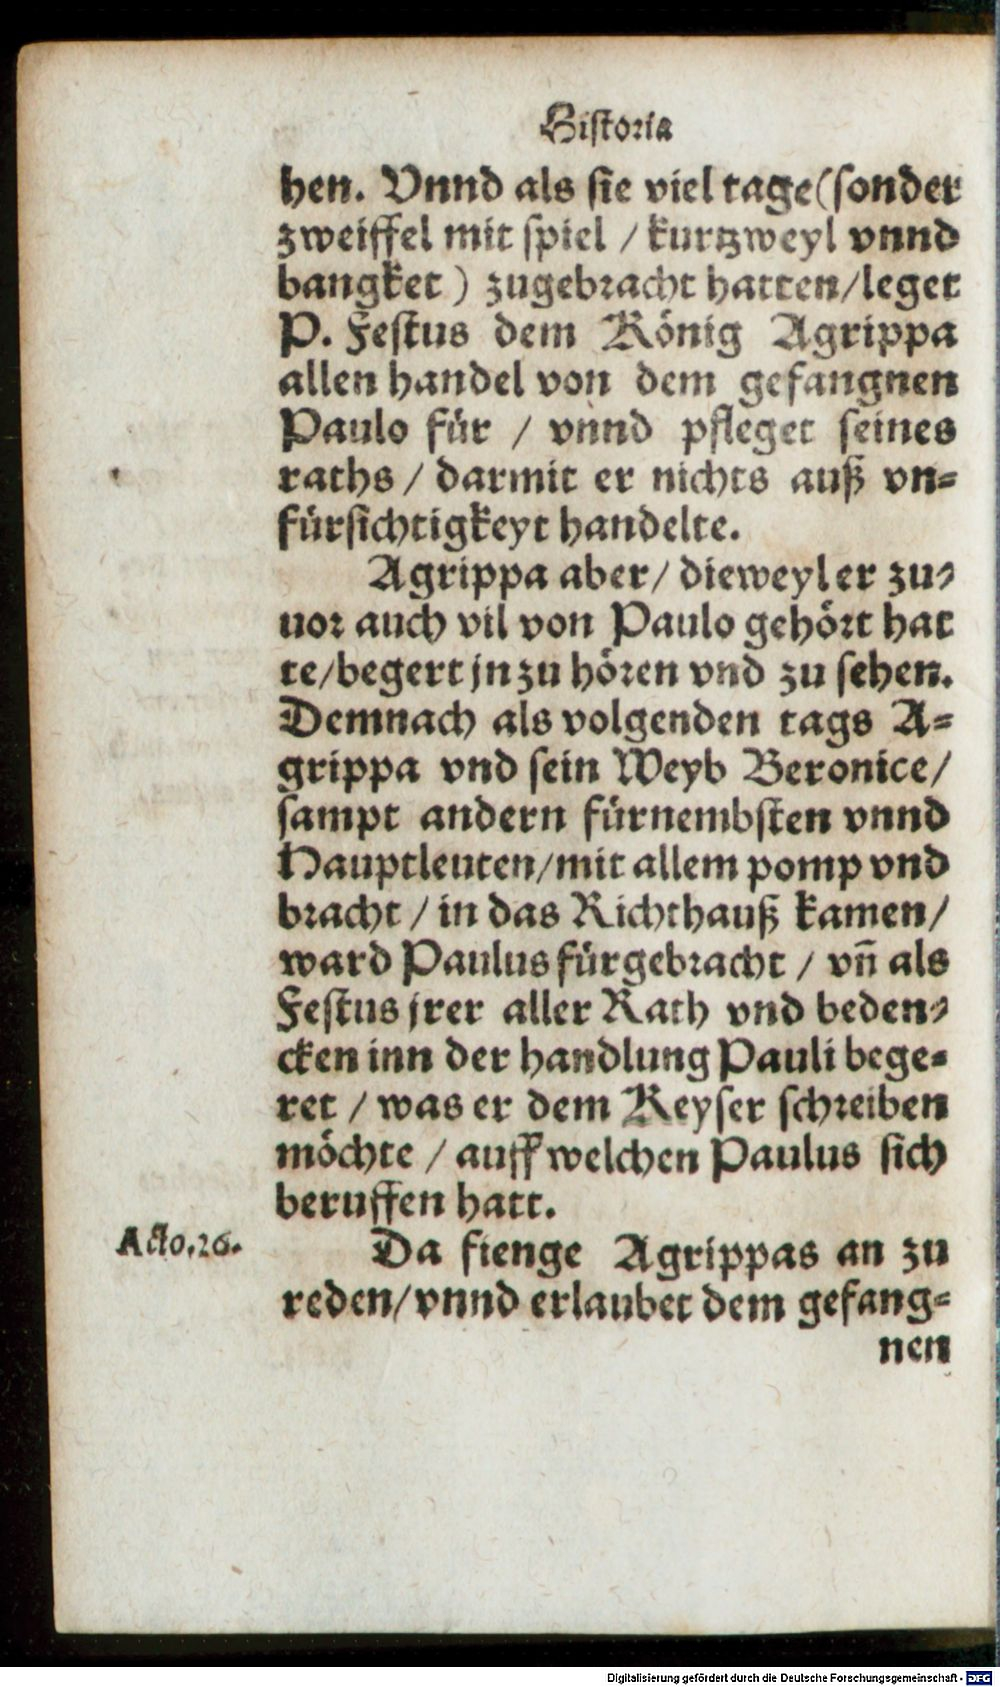 Historia
hen. Vnnd als sie viel tage (sonder
zweiffel mit spiel / kurtzweyl vnnd
bangket) zugebracht hatten / leget
P. Festus dem König Agrippa
allen handel von dem gefangnen
Paulo für / vnnd pfleget seines
raths / darmit er nichts auß vn=
fürsichtigkeyt handelte.
Agrippa aber / dieweyl er zu=
uor auch vil von Paulo gehört hat
te / begert jn zu hören vnd zu sehen.
Demnach als volgenden tags A=
grippa vnd sein Weyb Beronice /
sampt andern fürnembsten vnnd
Hauptleuten / mit allem pomp vnd
bracht / in das Richthauß kamen /
ward Paulus fürgebracht / vñ als
Festus jrer aller Rath vnd beden=
cken inn der handlung Pauli bege=
ret / was er dem Keyser schreiben
möchte / auff welchen Paulus sich
beruffen hatt.
Acto.26.
Da fienge Agrippas an zu
reden / vnnd erlaubet dem gefang=
nen
Digitalisierung gefördert durch die Deutsche Forschungsgemeinschaft - DFG